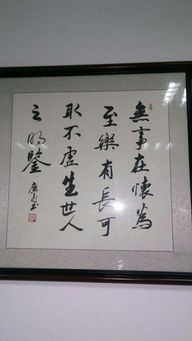 無事在懷為
至樂有長可
取不虛生世人
之明鑒